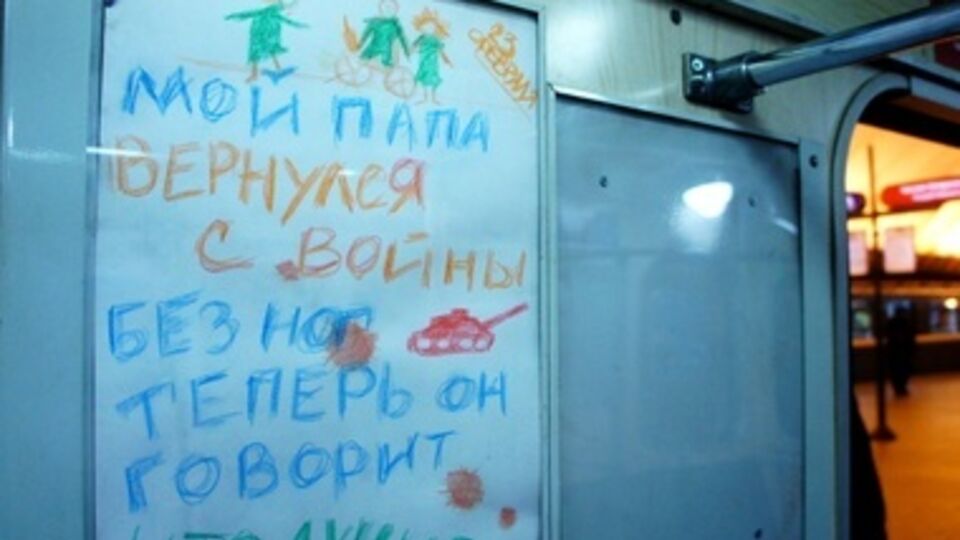 23
ФЕВРАЛЯ
МОЙ ПАПА
ВЕРНУЛСЯ
С ВОЙНЫ
БЕЗ НОГ
ТЕПЕРЬ ОН
ГОВОРИТ